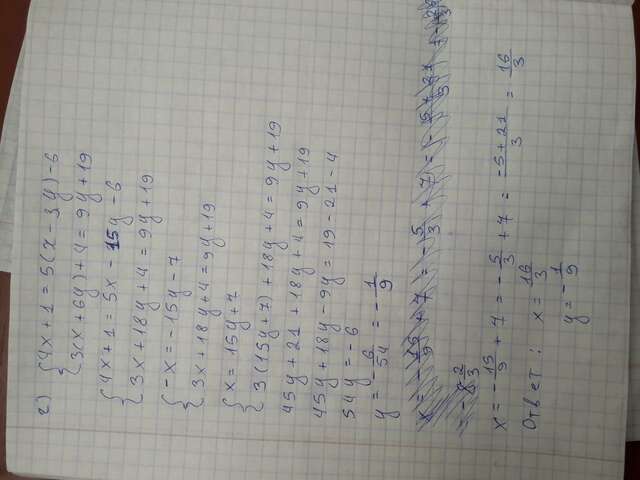 г) { 4x + 1 = 5(x - 3y) - 6
{ 3(x + 6y) + 4 = 9y + 19
{ 4x + 1 = 5x - 15y - 6
{ 3x + 18y + 4 = 9y + 19
{ -x = -15y - 7
{ 3x + 18y + 4 = 9y + 19
{ x = 15y + 7
{ 3(15y + 7) + 18y + 4 = 9y + 19
45y + 21 + 18y + 4 = 9y + 19
45y + 18y - 9y = 19 - 21 - 4
54y = -6
y = -6/54 = -1/9
x = -15/9 + 7 = -5/3 + 7 = (-5 + 21)/3 = 16/3
Ответ: x = 16/3
y = -1/9